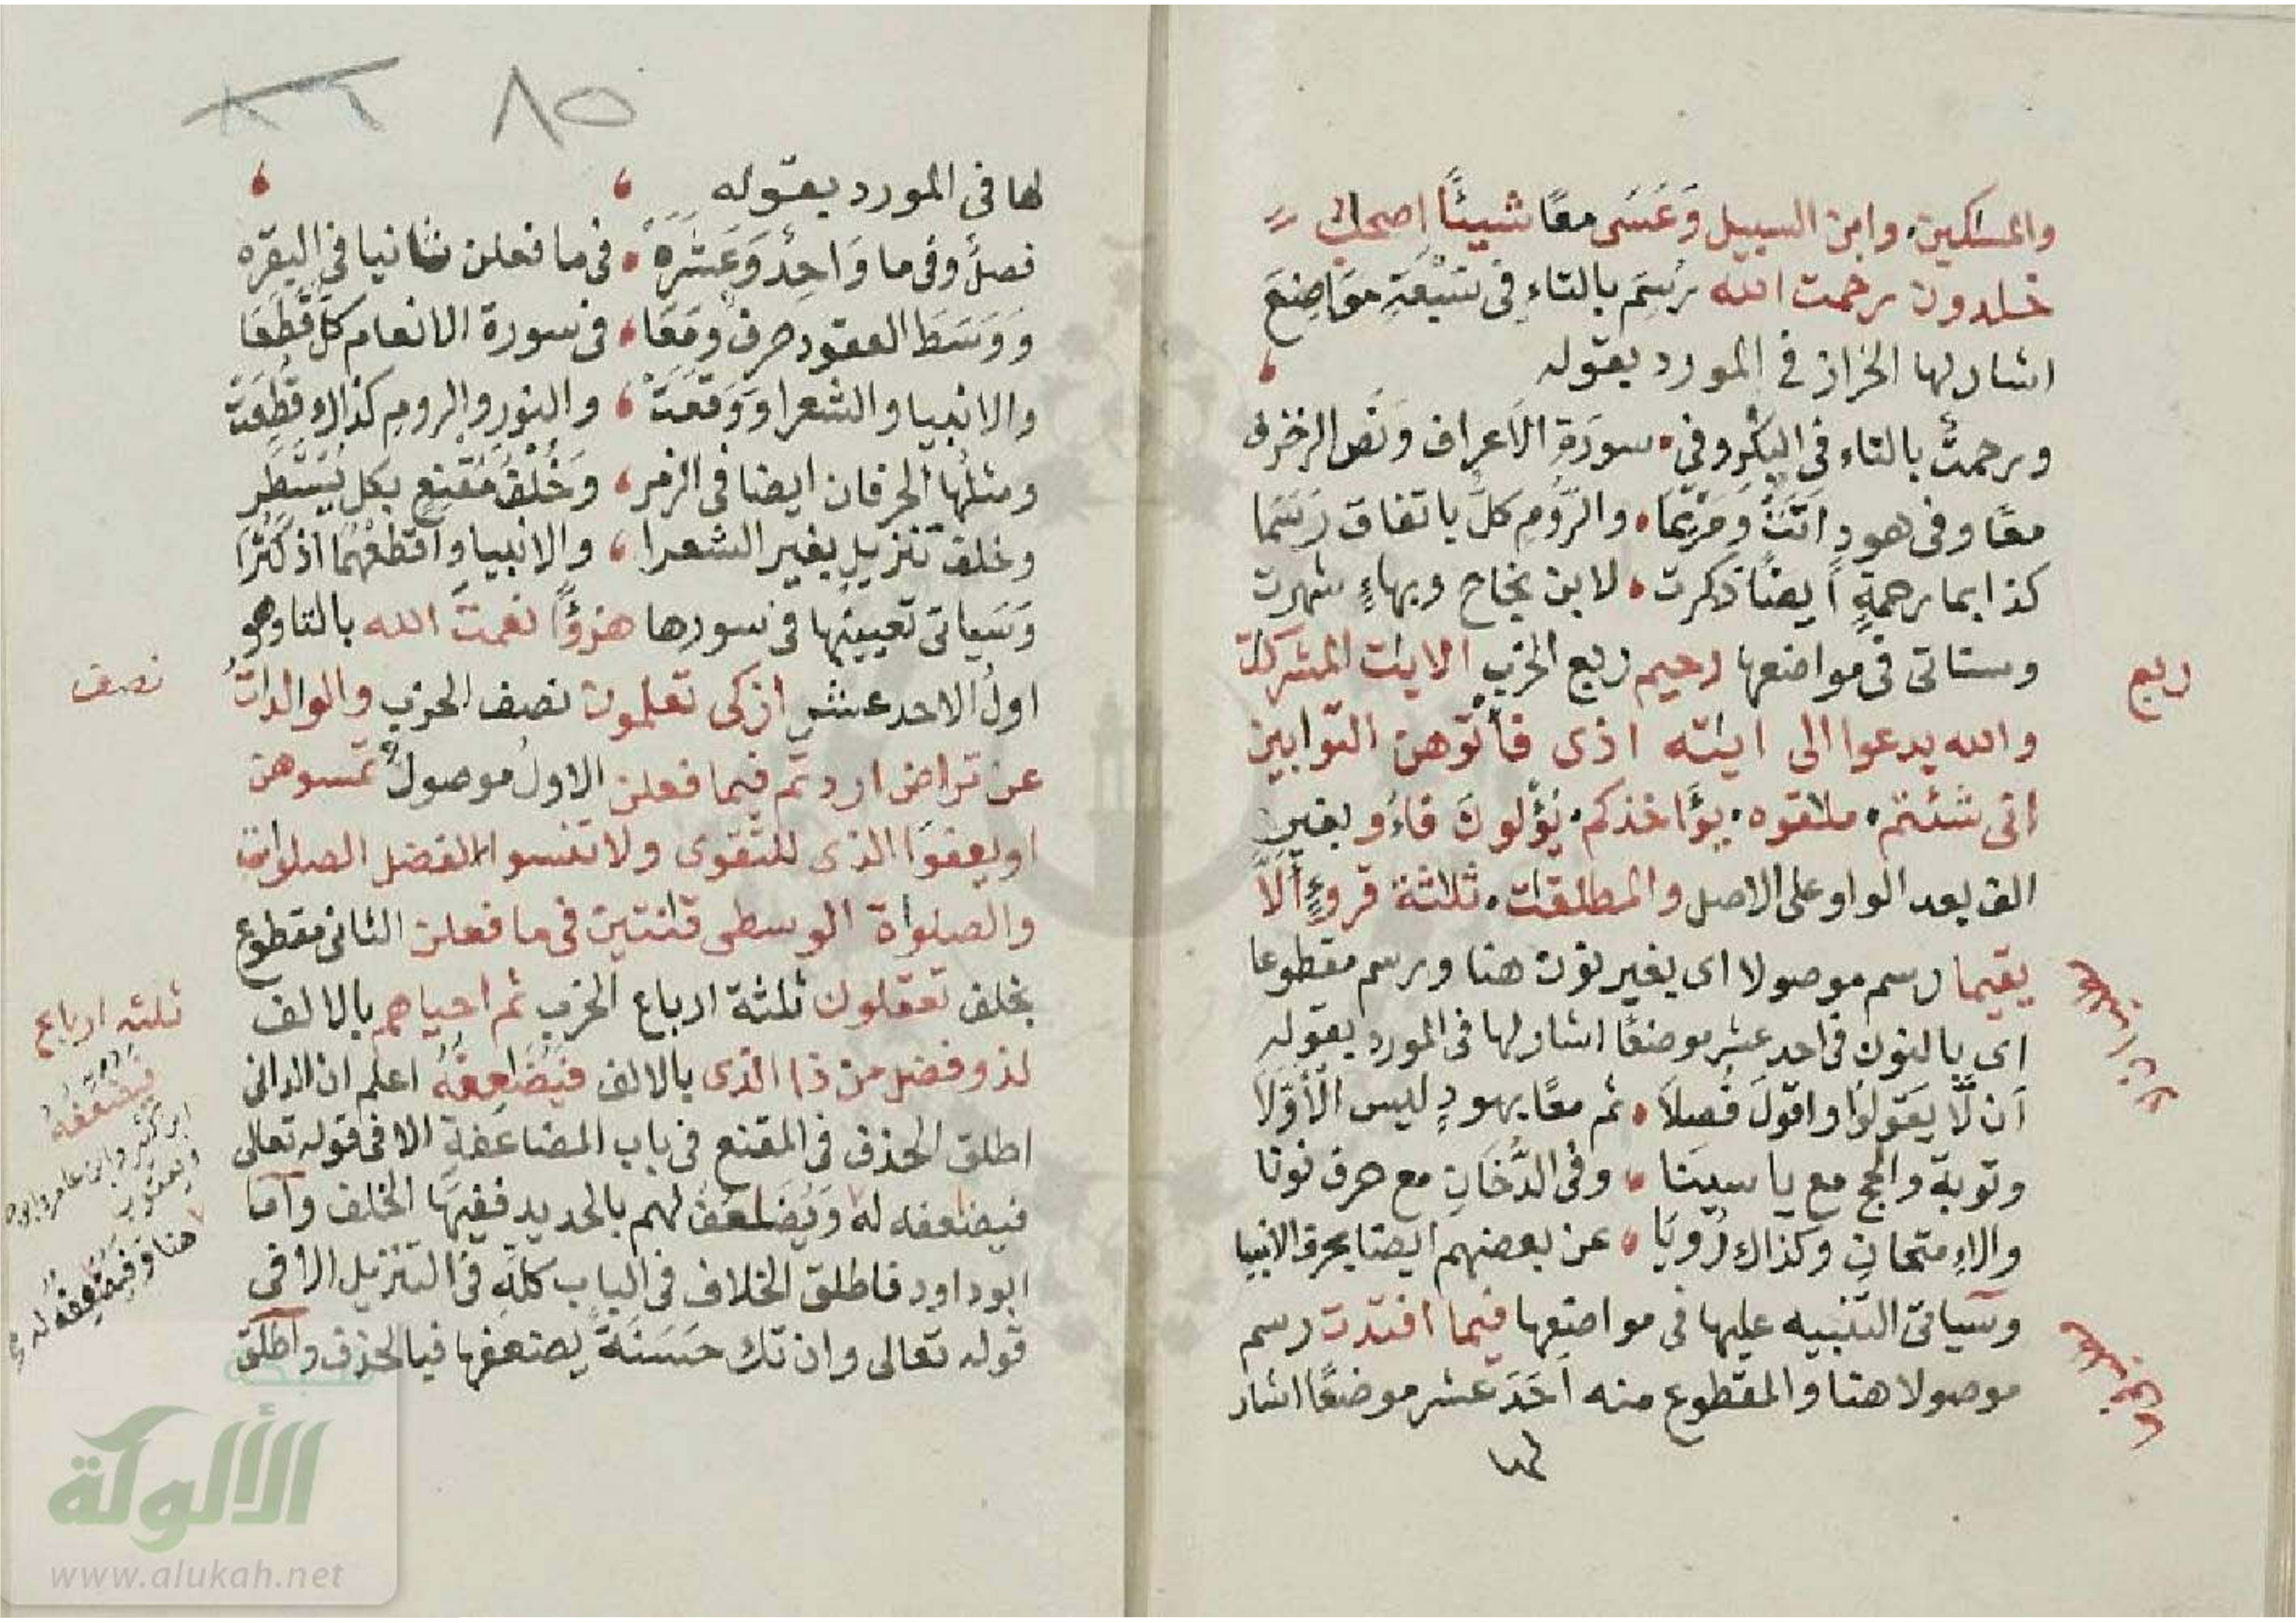 والمسكين وابن السبيل وَعَسَى معًا شيئًا اصحاب
خلدون رحمت الله رُسِمَ بالتاءِ فى سَبْعَةِ مَوَاضِعَ
اشار لها الخراز فى المورد بقوله
ورحمتُ بالتاء فى البكْرِ وفى سورَةِ الاَعراف ونَص الزخرف
معًا وفى هودِ اتَتْ وَمَرْيَمَا والرُّومِ كلٌّ باتفاق رَسَمَا
كذا بما رحمةٍ ايضًا ذكرت لابن نجاح وبهاءٍ شهرت
وستاتى فى مواضعها رحيم ربع الحزب الايت المشركت
ربع
والله يدعوا الى ايته اذى فأتوهن التوابين
انى شئتم ملقوه يؤاخذكم يُؤْلونَ فاءُو بغير
الف بعد الواو على الاصل والمطلقت ثلثة قروءٍ أَلاَّ
يقيما رسم موصولا اى بغير نون هنا ورسم مقطوعا
اى بالنون فى احد عشر موضعًا اشار لها فى المورد بقوله
اَن لَّا يَقولوا واقولَ فُصِلاَ ثم معًا بهودٍ ليس الاَوَّلا
وتوبة والحج مع ياسينَا وفى الدُّخَانِ مع حرف نونا
والاِمتحانِ وكذاك رُوِيَا عن بعضهم ايضا بحرف الانبيا
وسياتى التنبيه عليها فى مواضعها فيما افتدت رسم
موصولا هنا والمقطوع منه اَحَدَ عشر موضعًا اشار
لها
٨٥
لها فى المورد بقوله
فصلٌ وفى ما وَاحِدٌ وَعَشَرَهْ فى ما فعلن ثانيا فى البقره
وَوَسَطَ العقود حرفٌ ومَعَا فى سورة الانعام كلٌّ قُطِعَا
والانبيا والشعرا وَوَقَعَتْ والنورِ والرومِ كذاك قُطِعَتْ
ومثلُها الحرفان ايضا فى الزمر وَخُلْفُ مُقْنِعٍ بكل يُسْتَطَر
وخلف تنزيلٍ بغير الشعرا والانبيا واقطعْهُمَا اذ كَثُرَا
وَسَياتى تعيينُها فى سورها هزؤًا نعمتَ الله بالتا وهو
اولُ الاحد عشر ازكى تعلمون نصف الحزب والوالدات
نصف
عن تراض اردتم فيما فعلن الاولُ موصولٌ تمسوهن
او يعفوَا الذى للتقوى ولا تنسوا الفضل الصلوات
والصلواة الوسطى قنتين فى ما فعلن الثانى مقطوع
بخلف تعقلون ثلثة ارباع الحزب ثم احياهم بالالف
ثلثه ارباع
لذو فضل من ذا الذى بالالف فَيُضَاعِفهُ اعلم ان الدانى
اطلق الحذف فى المقنع فى باب المضاعَفة الا فى قوله تعالى
فيضعفه له وَيُضَاعَفُ لهم بالحديد ففيها الخلف وَاَمَا
ابو داود فاطلق الخلاف فى الباب كلهِ فى التنزيل الا فى
قوله تعالى وان تك حَسَنَةً يضعفها فبالحذف واطلق
فيضعفهُ
ابن كثير وابن عامر
ويعقوب
هنا وَفيضعفهُ له
شبكة
الألوكة
www.alukah.net